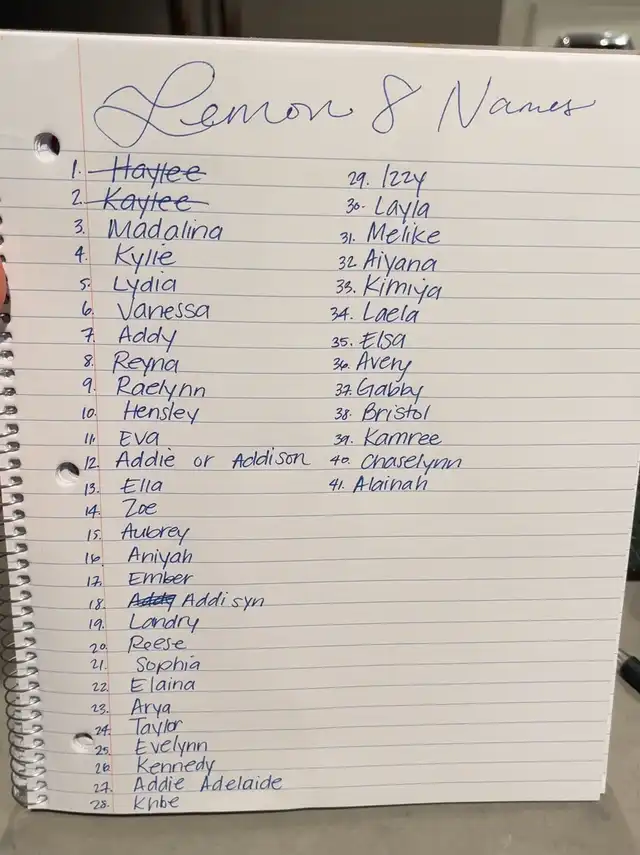 Lemon 8 Names
1. Haylee
2. Kaylee
3. Madalina
4. Kylie
5. Lydia
6. Vanessa
7. Addy
8. Reyna
9. Raelynn
10. Hensley
11. Eva
12. Addie or Addison
13. Ella
14. Zoe
15. Aubrey
16. Aniyah
17. Ember
18. Addy Addisyn
19. Landry
20. Reese
21. Sophia
22. Elaina
23. Arya
24. Taylor
25. Evelynn
26. Kennedy
27. Addie Adelaide
28.
29. Izzy
30. Layla
31. Melike
32. Aiyana
33. Kimiya
34. Laela
35. Elsa
36. Avery
37. Gabby
38. Bristol
39. Kamree
40. Chaselynn
41. Alainah